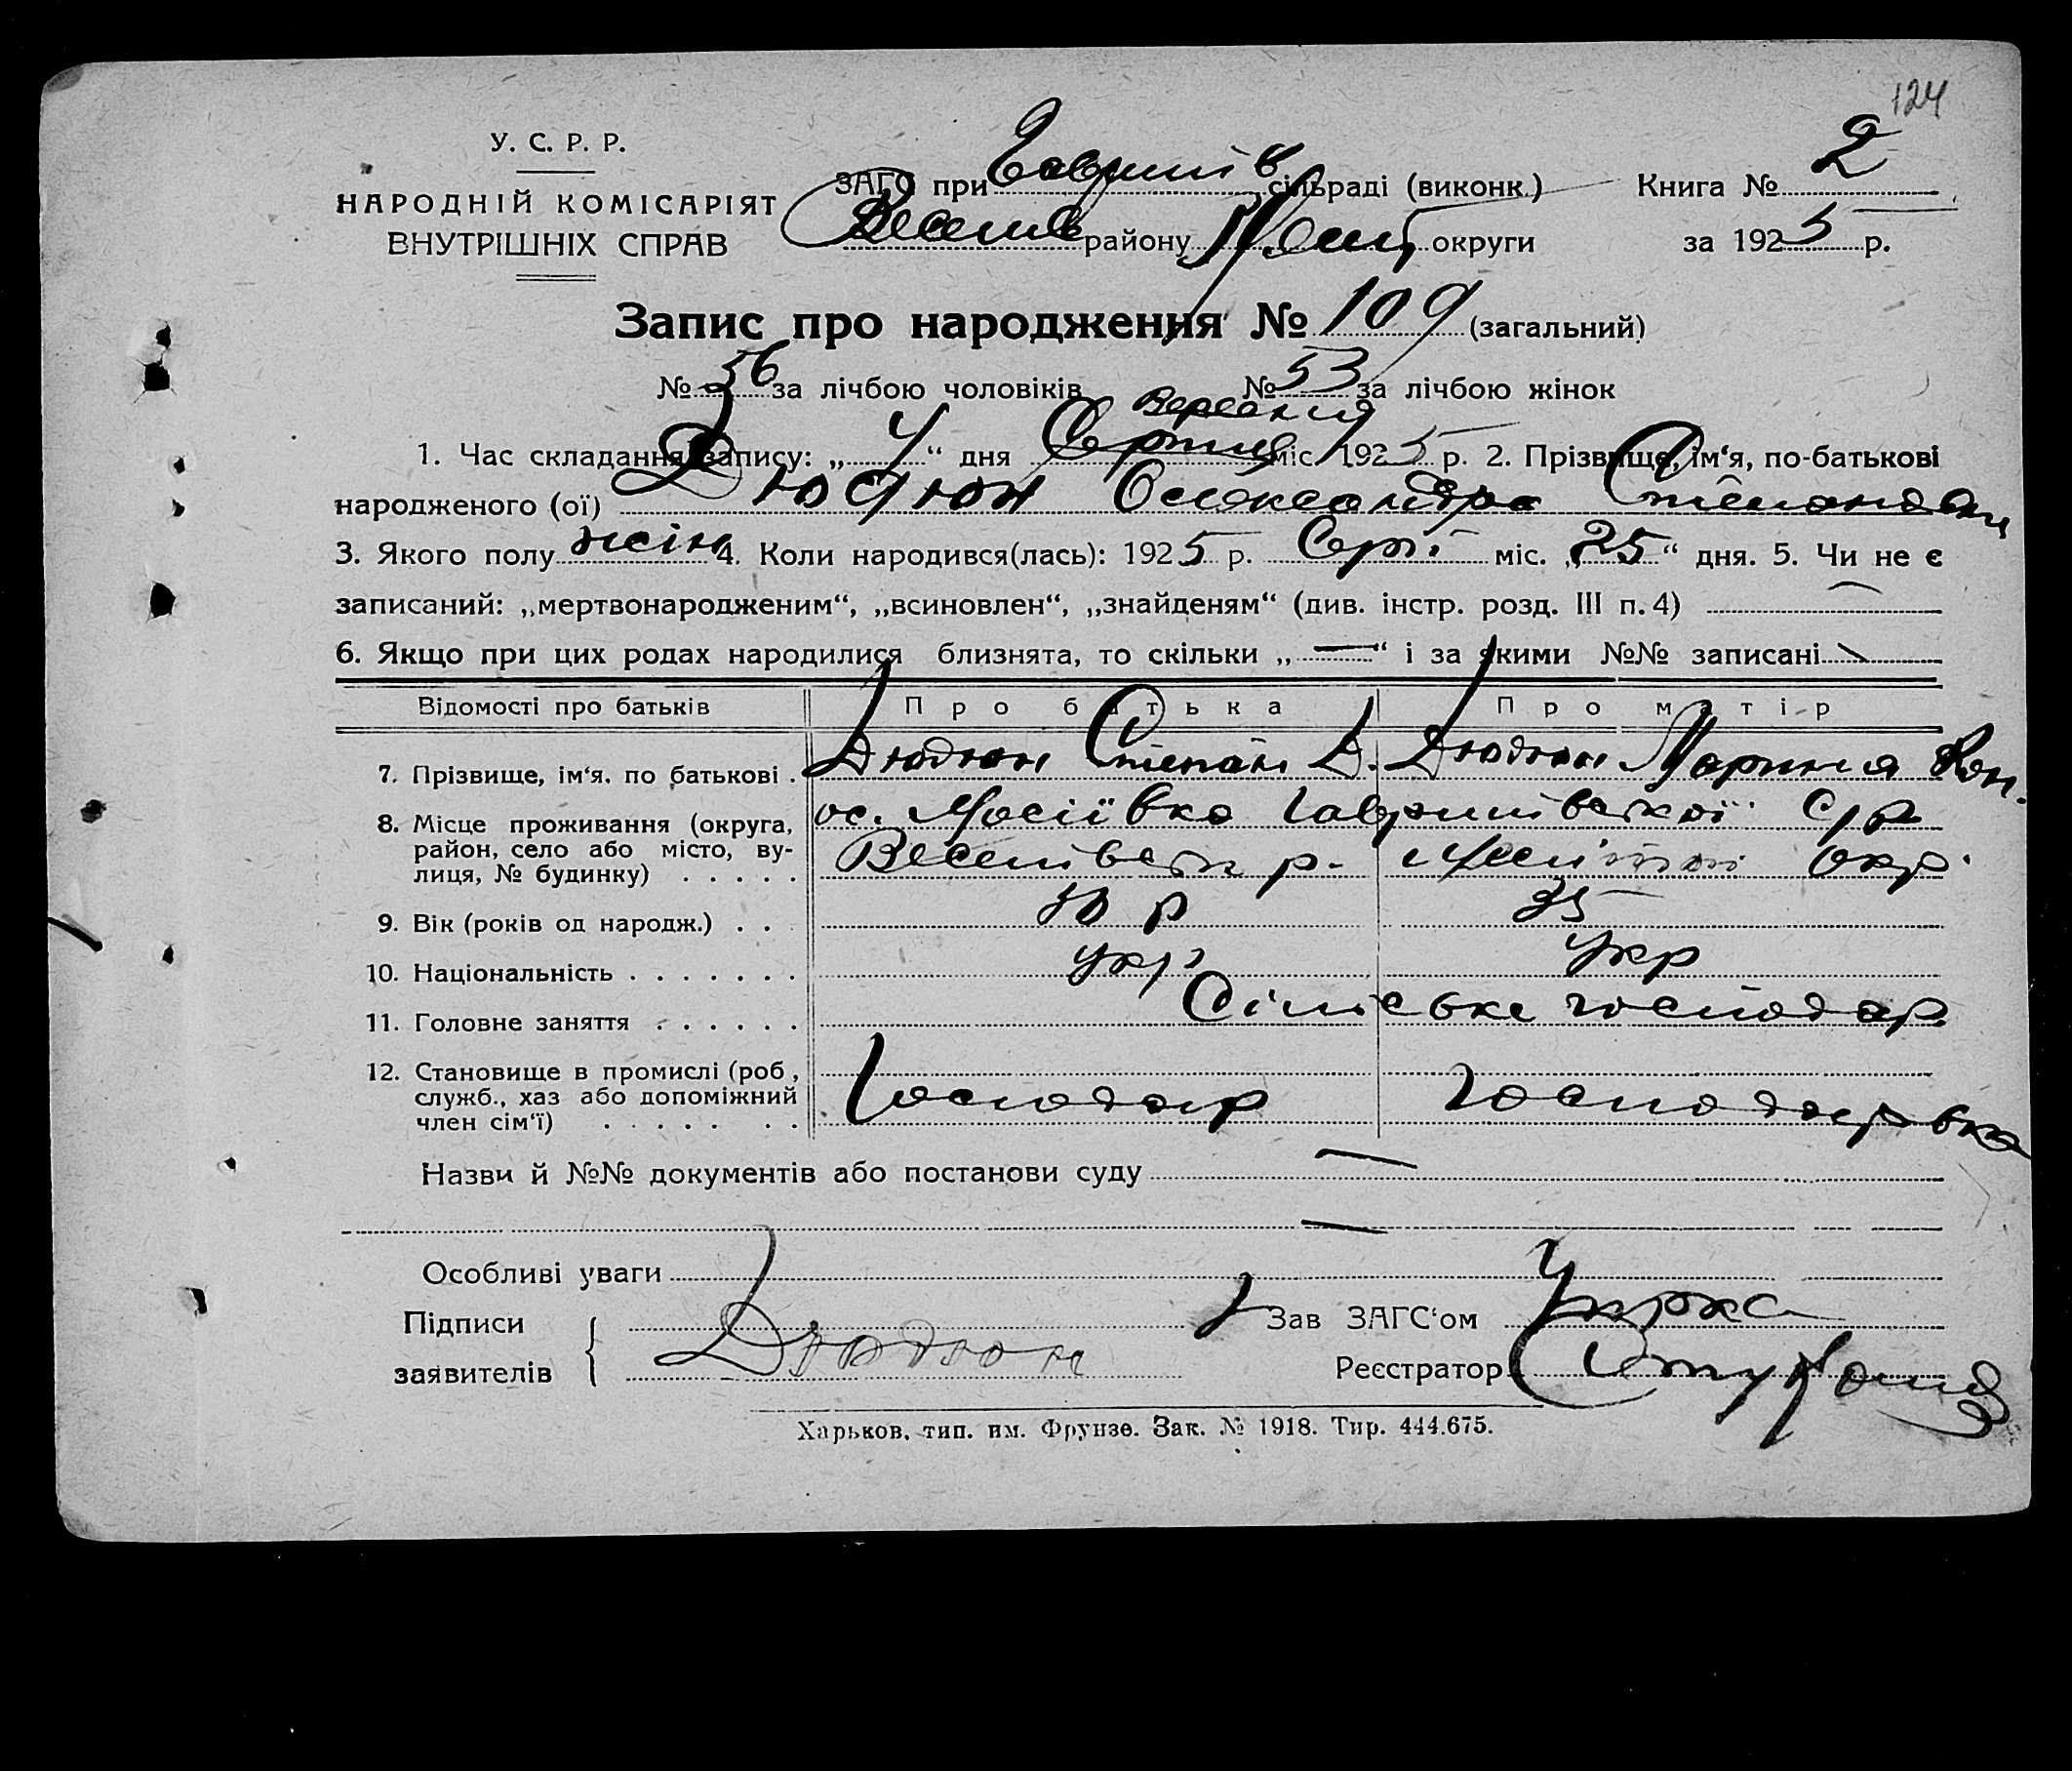 124
У. С. Р. Р.
НАРОДНІЙ КОМІСАРІЯТ
ВНУТРІШНІХ СПРАВ
ЗАГС при Гавришів сільраді (виконк.) Книга № 2
Веселів району Меліт округи за 1925 р.
Запис про народження № 109 (загальний)
№ 56 за лічбою чоловіків № 53 за лічбою жінок
Вересня
1. Час складання запису: „4“ дня Серпня міс. 1925 р. 2. Прізвище, ім‘я, по-батькові
народженого (ої) Дюдюн Олександра Степановна
3. Якого полу жін 4. Коли народився(лась): 1925 р. Серп. міс. „25“ дня. 5. Чи не є
записаний: „мертвонародженим“, „всиновлен“, „знайденям“ (див. інстр. розд. III п. 4) —
6. Якщо при цих родах народилися близнята, то скільки „—“ і за якими №№ записані
Відомості про батьків Про батька Про матір
7. Прізвище, ім‘я, по батькові . Дюдюн Степан Д. Дюдюн Марина Кон.
8. Місце проживання (округа, район, село або місто, вулиця, № будинку) . . . . . ос. Мосіївка Гавришівської С/р
Веселівськ р. окр.
9. Вік (років од народж.) . . . 50 р 35
10. Національність . . . . . . . укр укр
11. Головне заняття . . . . . . Сільське господар.
12. Становище в промислі (роб., служб., хаз або допоміжний член сім‘ї) . . . . . . . Господар Господарка
Назви й №№ документів або постанови суду —
—
Особливі уваги
Підписи заявителів { Дюдюн
Зав ЗАГС‘ом
Реєстратор
Харьков, тип. им. Фрунзе. Зак. № 1918. Тир. 444.675.